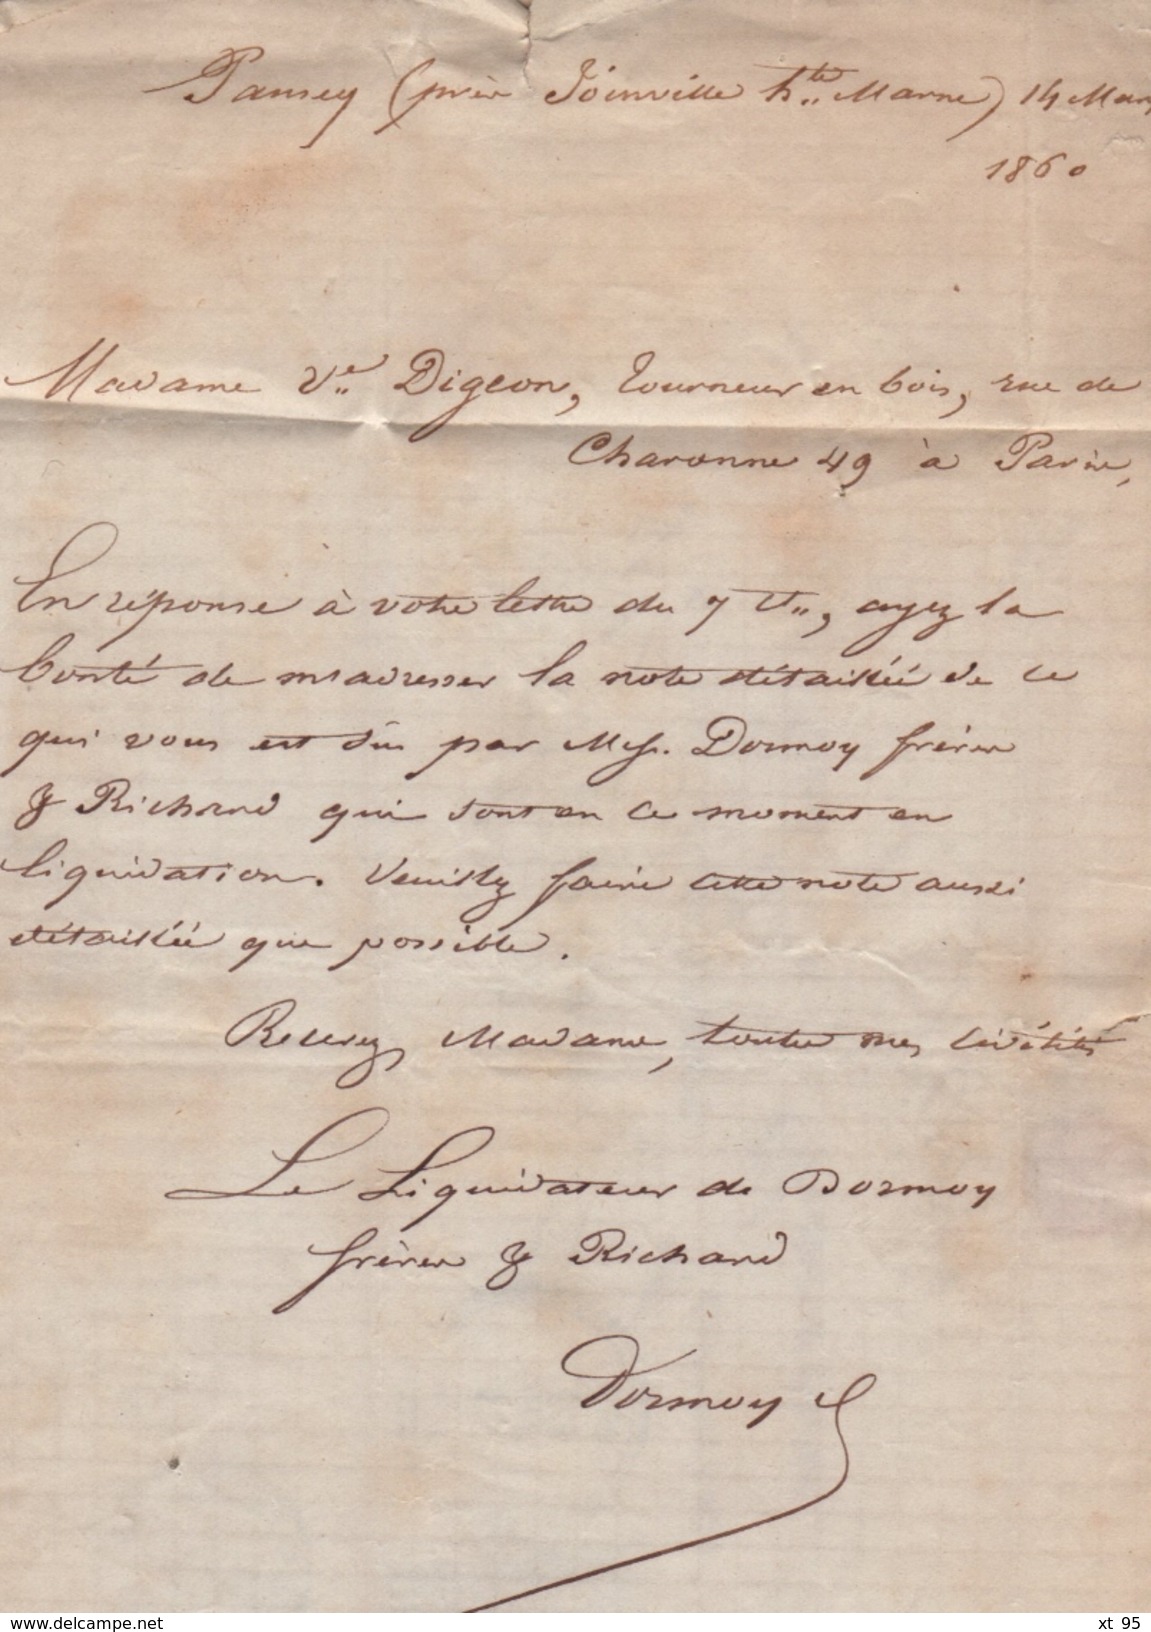 Pansey (près Joinville hte Marne) 14 Mars
1860
Madame Ve Digeon, tourneur en bois, rue de
Charonne 49 à Paris,
En réponse à votre lettre du 7 Ct, ayez la
bonté de m'adresser la note détaillée de ce
qui vous est dû par MM. Dormoy frères
& Richard qui sont en ce moment en
liquidation. Veuillez faire cette note aussi
détaillée que possible.
Recevez, Madame, toutes mes civilités
Le Liquidateur de Dormoy
frères & Richard
Dormoy
www.delcampe.net
xt 95